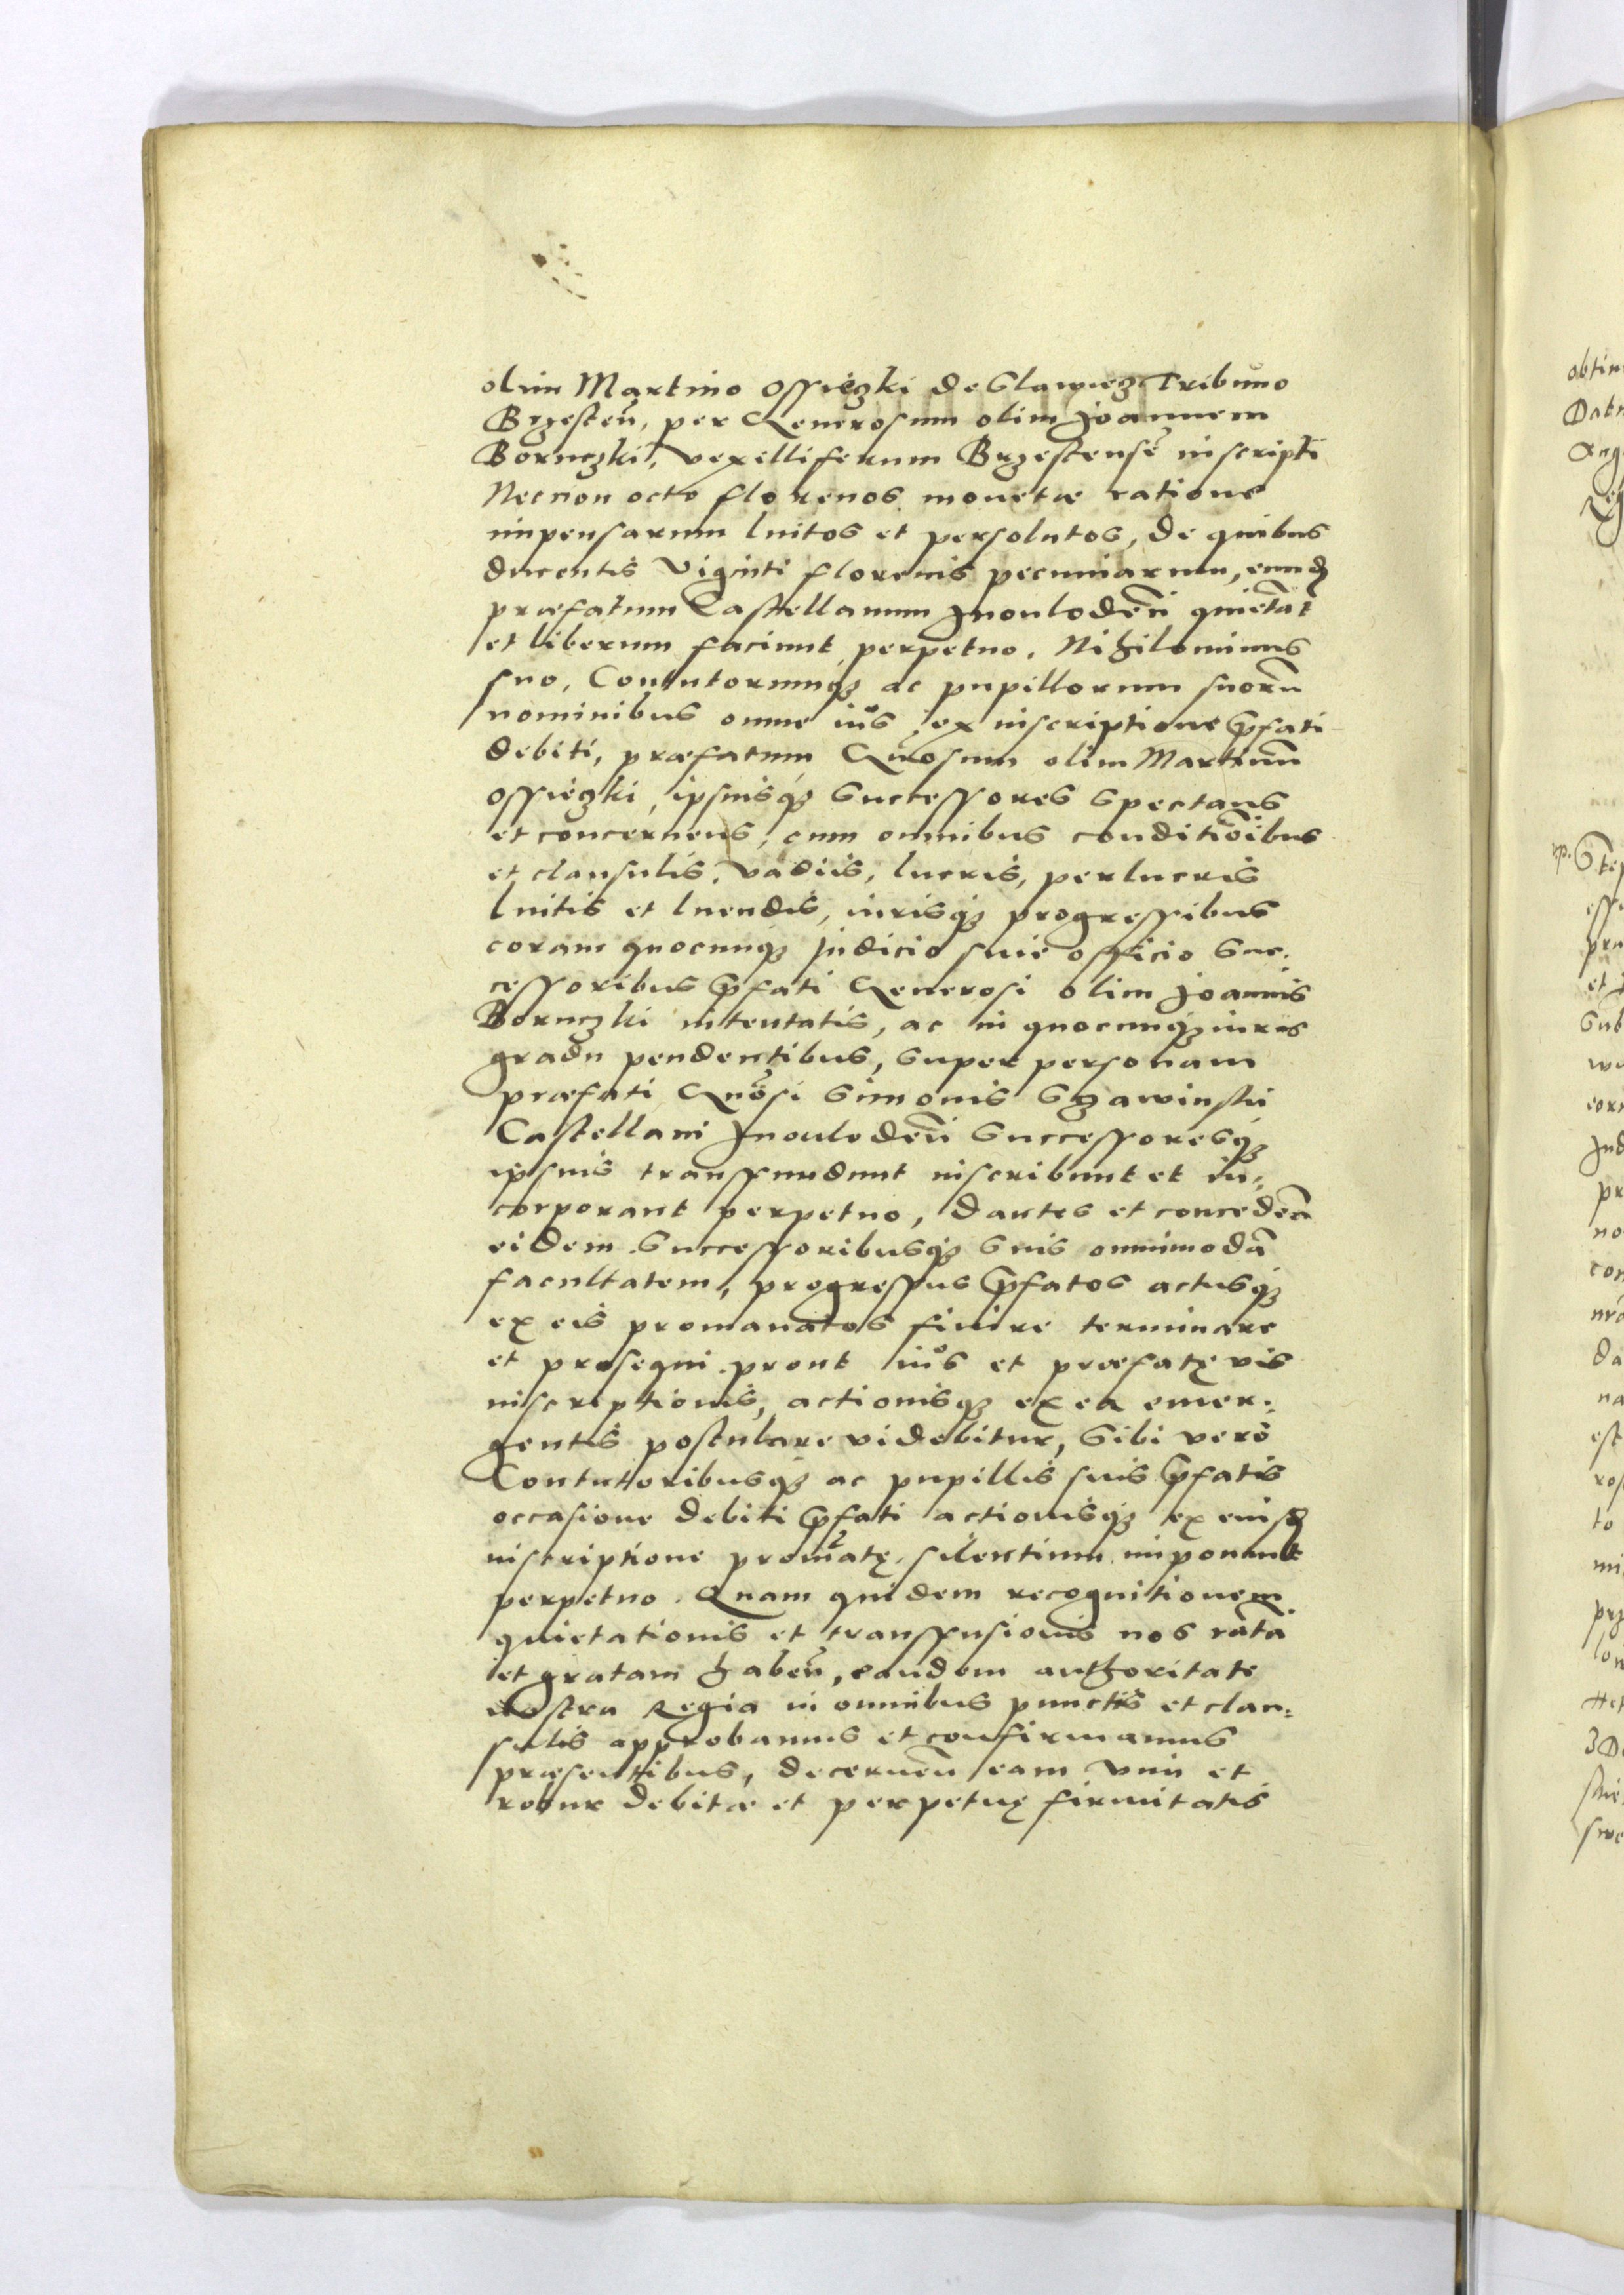 olim Martino Ossięzki de Glawiez Tribuno
Brzesteñ, per Generosum olim Joannem
Bornczki, vexilliferum Brzestensẽ inscripti
Necnon octo florenos monetæ ratione
impensarum luitos et persolutos, de quibus
ducentis Viginti florenis pecuniarum, eund
præfatum Castellanum Jnoulodeñ quietãt
et liberum faciunt perpetuo. Nihilominus
suo, Contutorumqꝫ ac pupillorum suorũ
nominibus omne iůs ex inscriptione p̃fati
debiti, præfatum Gñosum olim Martinũ
ossięzki, ipsiusqꝫ Successores Spectans
et concernens, cum omnibus conditiõibus
et clausulis, vadiis, lucris, perlucris
luitis et luendis, iurisqꝫ progressibus
coram quocunqꝫ Judicio siue officio Suc:
cessoribus p̃fati Generosi olim Joannis
Bornczki intentatis, ac in quocunqꝫ iuris
gradu pendentibus, super personam
præfati Gñosi Simonis Szawinski
Castellani Jnoulodeñ Successoresqꝫ
ipsius transfundunt inscribunt et in:
corporant perpetuo, Dantes et concedeñ
eidem Successoribusqꝫ Suis omnimodã
facultatem, progressus p̃fatos actusqꝫ
ex eis promanatos finire terminare
et prosequi prout iůs et præfatę vis
inscriptionis, actionisqꝫ ex ea emer:
gentis postulare videbitur, Sibi vero
Contuttoribusqꝫ ac pupillis suis p̃fatis
occasione debiti p̃fati actionisqꝫ ex eiusd
inscriptione promãtę silentium imponunt
perpetuo. Quam quidem recognitionem
quietationis et transfusionis nos ratã
et gratam habeñ, eandem authoritate
nostra Regia in omnibus punctis et clau:
sulis approbamus et confirmamus
præsentibus, decerneñ eam vim et
robur debitæ et perpetuę firmitatis